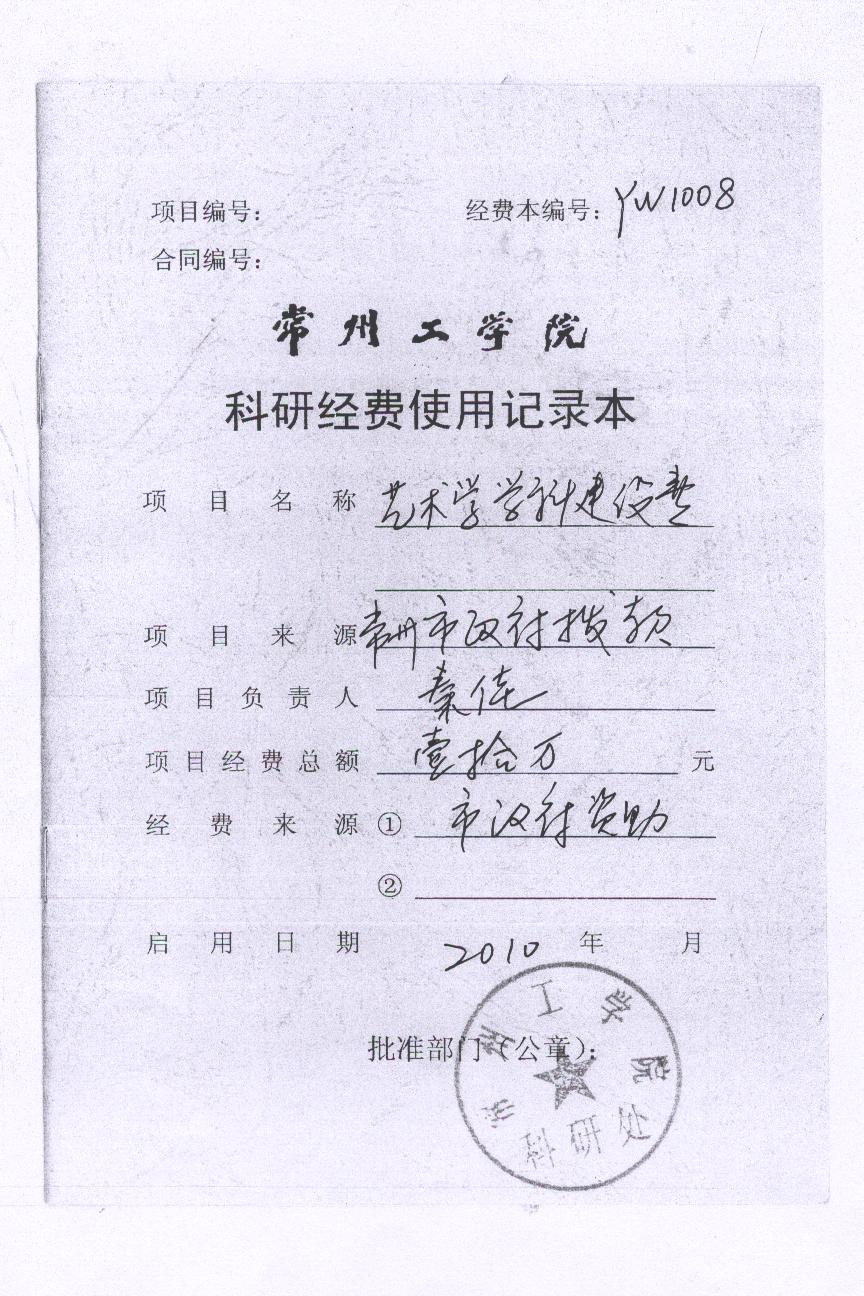 项目编号： 经费本编号：YW1008
合同编号：
常州工学院
科研经费使用记录本
项目名称 艺术学学科建设费
项目来源 常州市政府拨款
项目负责人 秦佳
项目经费总额 壹拾万 元
经费来源 ① 市政府资助
②
启用日期 2010 年 月
批准部门（公章）：
常州工学院
科研处